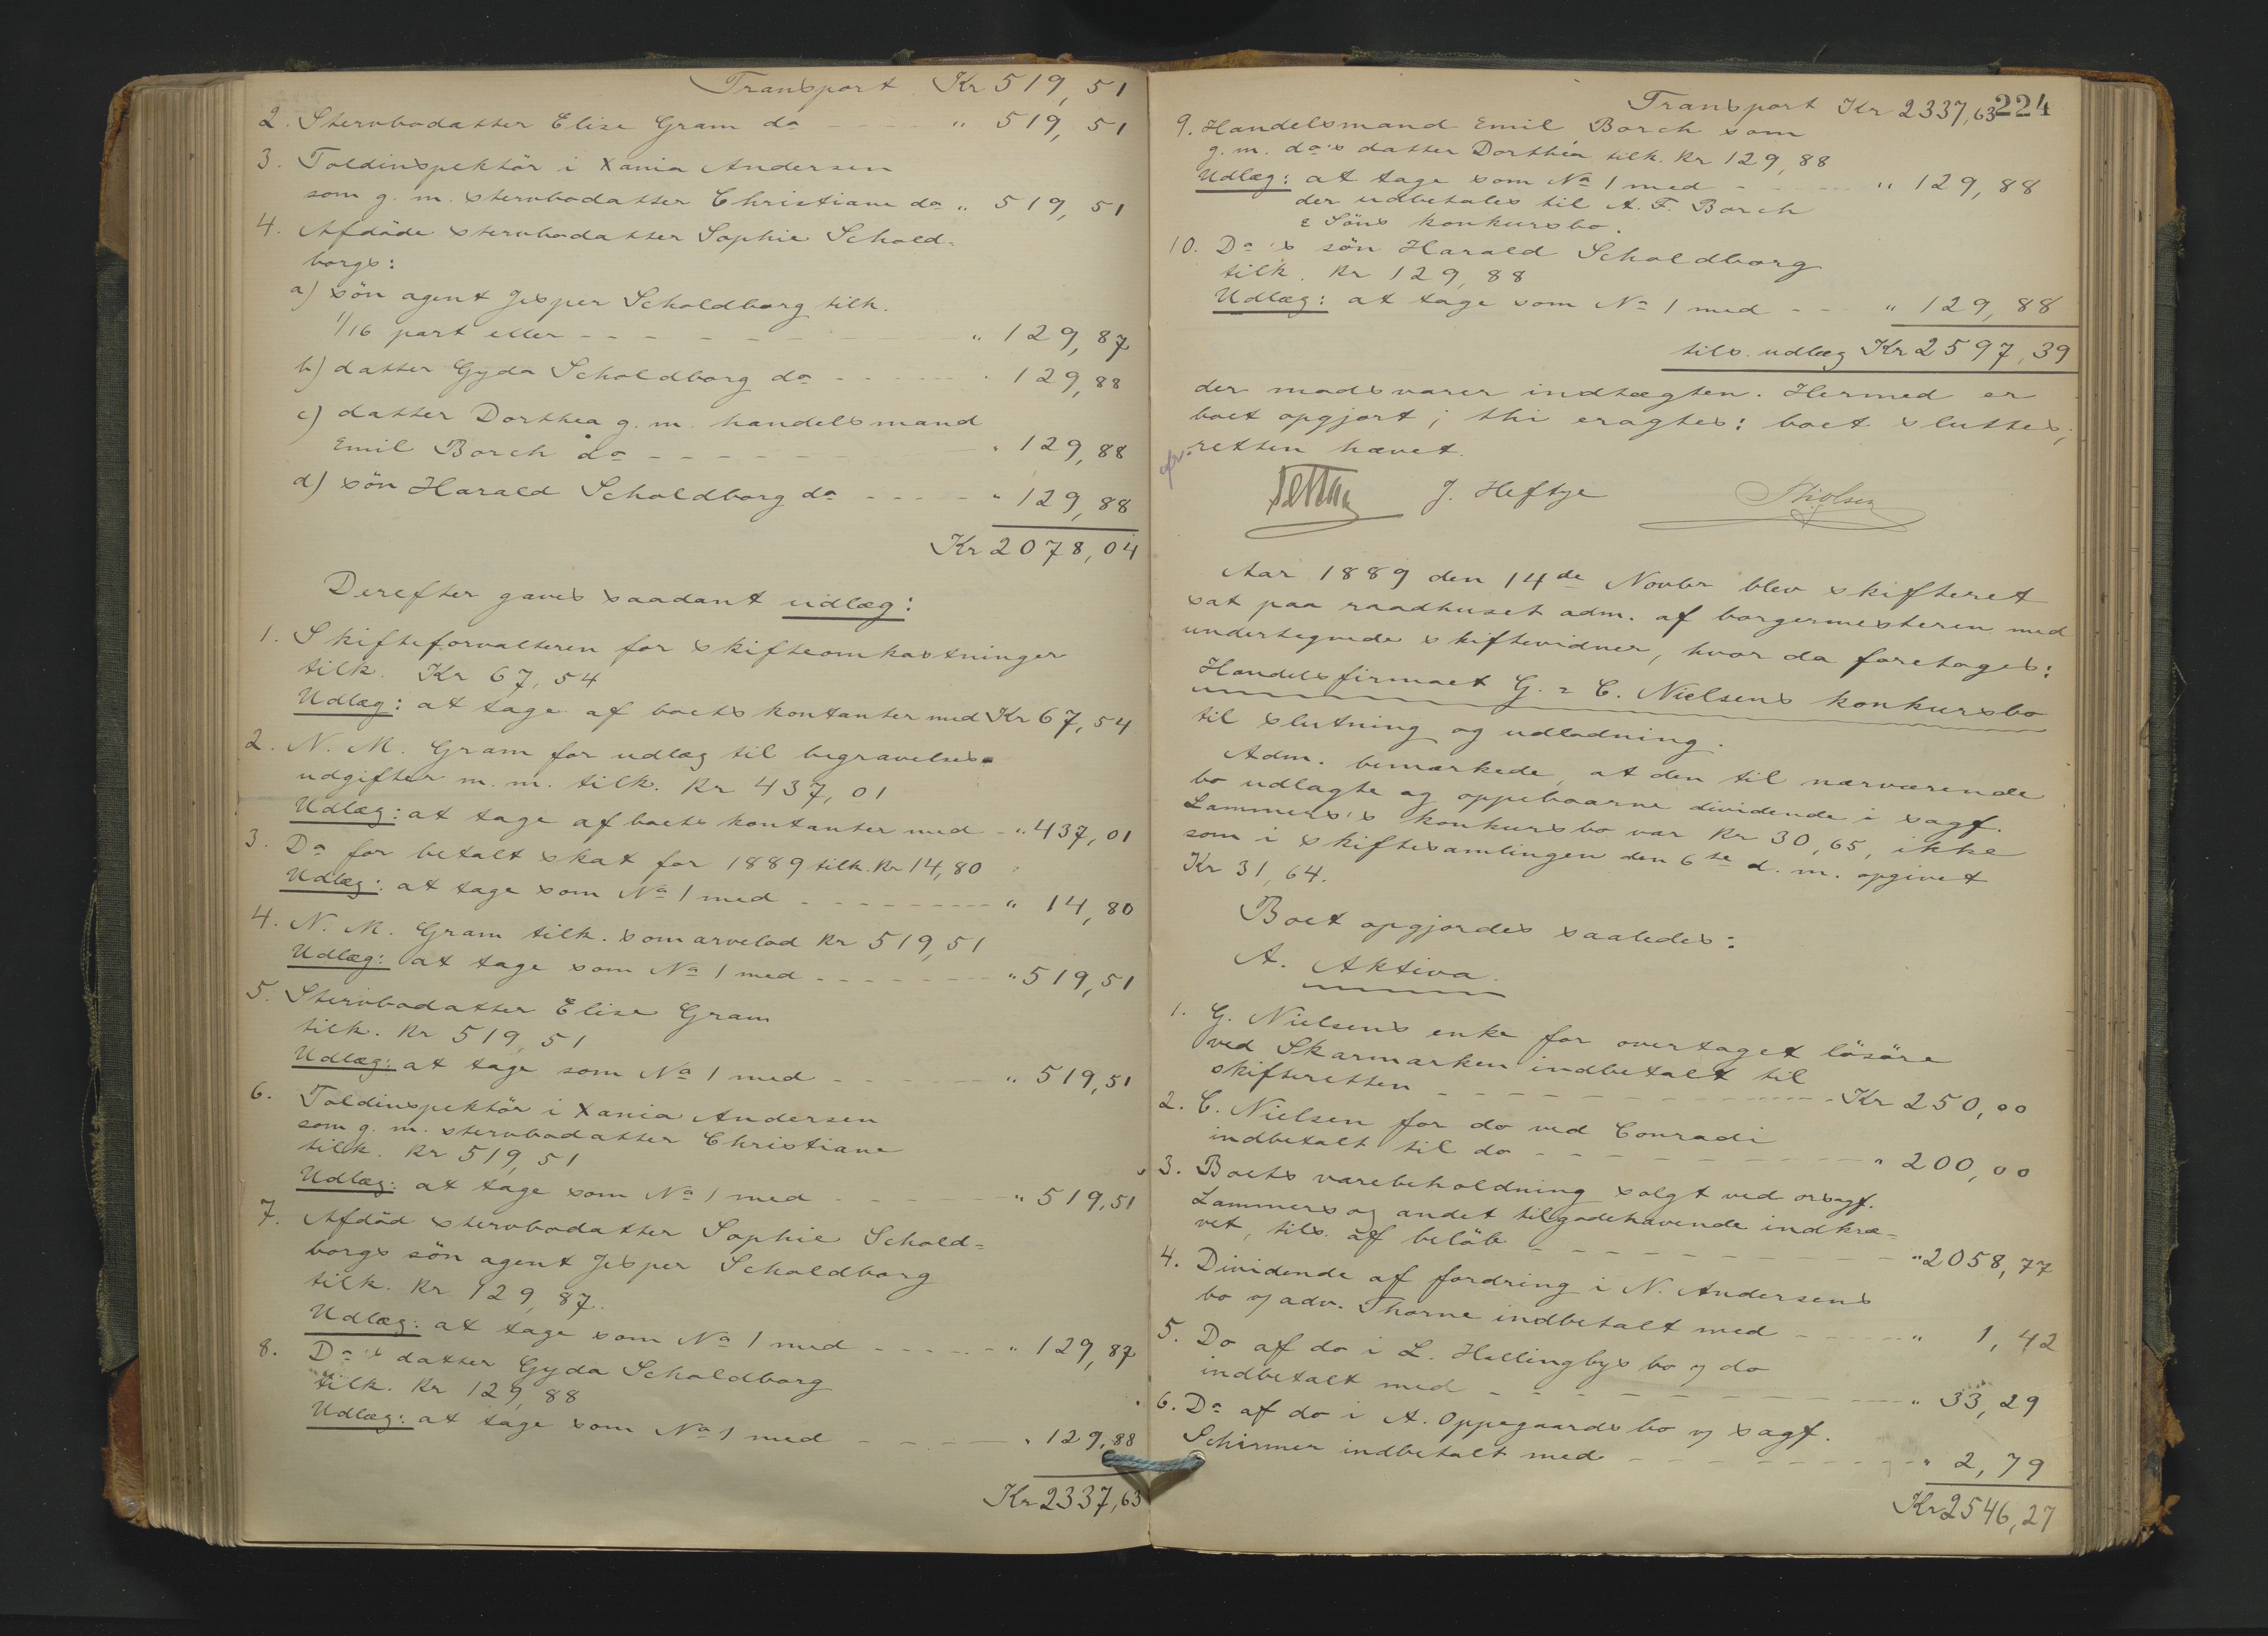 Transport Kr 519,51
2. Stervbodatter Elise Gram do - - - " 519,51
3. Toldinspektör i Xania Andersen
som g. m. stervbodatter Christiane do " 519,51
4. Afdöde stervbodatter Sophie Schold-
borgs:
a) sön agent Jesper Scholdborg tilk.
1/16 part eller - - - - - - - " 129,87
b) datter Gyda Scholdborg do - - - - " 129,88
c) datter Dorthea g. m. handelsmand
Emil Borch do - - - - - - " 129,88
d) sön Harald Scholdborg do - - - - " 129,88
Kr 2078,04
Derefter gaves saadant udlæg:
1. Skifteforvalteren for skifteomkostninger
tilk. Kr 67,54
Udlæg: at tage af boets kontanter med Kr 67,54
2. N. M. Gram for udlæg til begravelses-
udgifter m. m. tilk. Kr 437,01
Udlæg: at tage af boets kontanter med - " 437,01
3. Do for betalt skat for 1889 tilk. Kr 14,80
Udlæg: at tage som No 1 med - - - - - - " 14,80
4. N. M. Gram tilk. som arvelod Kr 519,51
Udlæg: at tage som No 1 med - - - - - " 519,51
5. Stervbodatter Elise Gram
tilk. Kr 519,51
Udlæg: at tage som No 1 med - - - - - " 519,51
6. Toldinspektör i Xania Andersen
som g. m. stervbodatter Christiane
tilk. Kr 519,51
Udlæg: at tage som No 1 med - - - - - " 519,51
7. Afdöd stervbodatter Sophie Schold-
borgs sön agent Jesper Scholdborg
tilk. Kr 129,87.
Udlæg: at tage som No 1 med - - - - - " 129,87
8. Do's datter Gyda Scholdborg
tilk. Kr 129,88
Udlæg: at tage som No 1 med - - - - - " 129,88
Kr 2337,63
Transport Kr 2337,63 224
9. Handelsmand Emil Borch som
g. m. do's datter Dorthea tilk. Kr 129,88
Udlæg: at tage som No 1 med - - - - " 129,88
der udbetales til A. F. Borch
& Söns konkursbo.
10. Do's sön Harald Scholdborg
tilk. Kr 129,88
Udlæg: at tage som No 1 med - - - " 129,88
tils. udlæg Kr 2597,39
der modsvarer indtægten. Hermed er
boet opgjort; thi eragtes: boet sluttes;
retten hævet.
J. Heftye
Aar 1889 den 14de Novbr blev skifteret
sat paa raadhuset adm. af borgermesteren med
undertegnede skiftevidner, hvor da foretoges:
Handelsfirmaet G. & C. Nielsens konkursbo
til slutning og udlodning.
Adm. bemærkede, at den til nærværende
bo udlagte og oppebaarne dividende i sagf.
Lammers's konkursbo var Kr 30,65, ikke
som i skiftesamlingen den 6te d. m. opgivet
Kr 31,64.
Boet opgjordes saaledes:
A. Aktiva.
1. G. Nielsens enke for overtaget lösöre
ved Skarmarken indbetalt til
skifteretten - - - - - - - - - Kr 250,00
2. C. Nielsen for do ved Conradi
indbetalt til do - - - - - - - - " 200,00
3. Boets varebeholdning solgt ved orsagf.
Lammers og andet tilgodehavende indkræ-
vet, tils. af belöb - - - - - - - - " 2058,77
4. Dividende af fordring i N. Andersens
bo v/ adv. Thorne indbetalt med - - - - " 1,42
5. Do af do i L. Hellingbys bo v/ do
indbetalt med - - - - - - - - - " 33,29
6. Do af do i A. Oppegaards bo v/ sagf.
Schirmer indbetalt med - - - - - - - " 2,79
Kr 2546,27